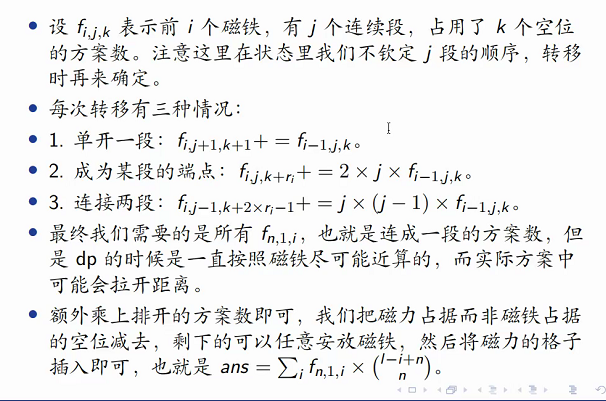 • 设 f_{i,j,k} 表示前 i 个磁铁，有 j 个连续段，占用了 k 个空位
的方案数。注意这里在状态里我们不钦定 j 段的顺序，转移
时再来确定。
• 每次转移有三种情况：
• 1. 单开一段：f_{i,j+1,k+1}+ = f_{i−1,j,k}。
• 2. 成为某段的端点：f_{i,j,k+r_i}+ = 2 × j × f_{i−1,j,k}。
• 3. 连接两段：f_{i,j−1,k+2×r_i−1}+ = j × (j − 1) × f_{i−1,j,k}。
• 最终我们需要的是所有 f_{n,1,i}，也就是连成一段的方案数，但
是 dp 的时候是一直按照磁铁尽可能近算的，而实际方案中
可能会拉开距离。
• 额外乘上排开的方案数即可，我们把磁力占据而非磁铁占据
的空位减去，剩下的可以任意安放磁铁，然后将磁力的格子
插入即可，也就是 ans = ∑_i f_{n,1,i} × \binom{l−i+n}{n}。